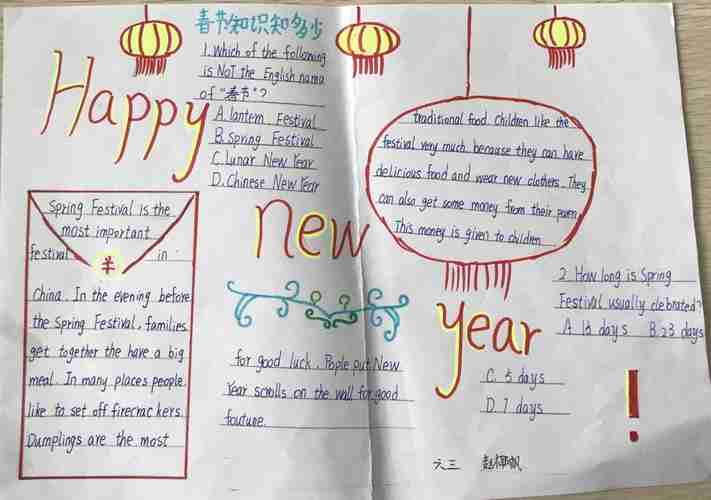 春节知识知多少
1. Which of the following
is NOT the English name
of "春节"?
A. lantern Festival
B. Spring Festival
C. Lunar New Year
D. Chinese New Year
Happy
new
year
!
Spring Festival is the
most important
festival in
¥
China. In the evening before
the Spring Festival, families
get together the have a big
meal. In many places people
like to set off firecrac kers.
Dumplings are the most
traditional food. Children like the
festival very much because they can have
delicious food and wear new clothers. They
can also get some money from their
This money is given to children
for good luck. Pople put New
Year scrolls on the wall for good
foutune.
2. How long is Spring
Festival usually clebrated?
A. 13 days B. 23 days
C. 5 days
D. 7 days
六三